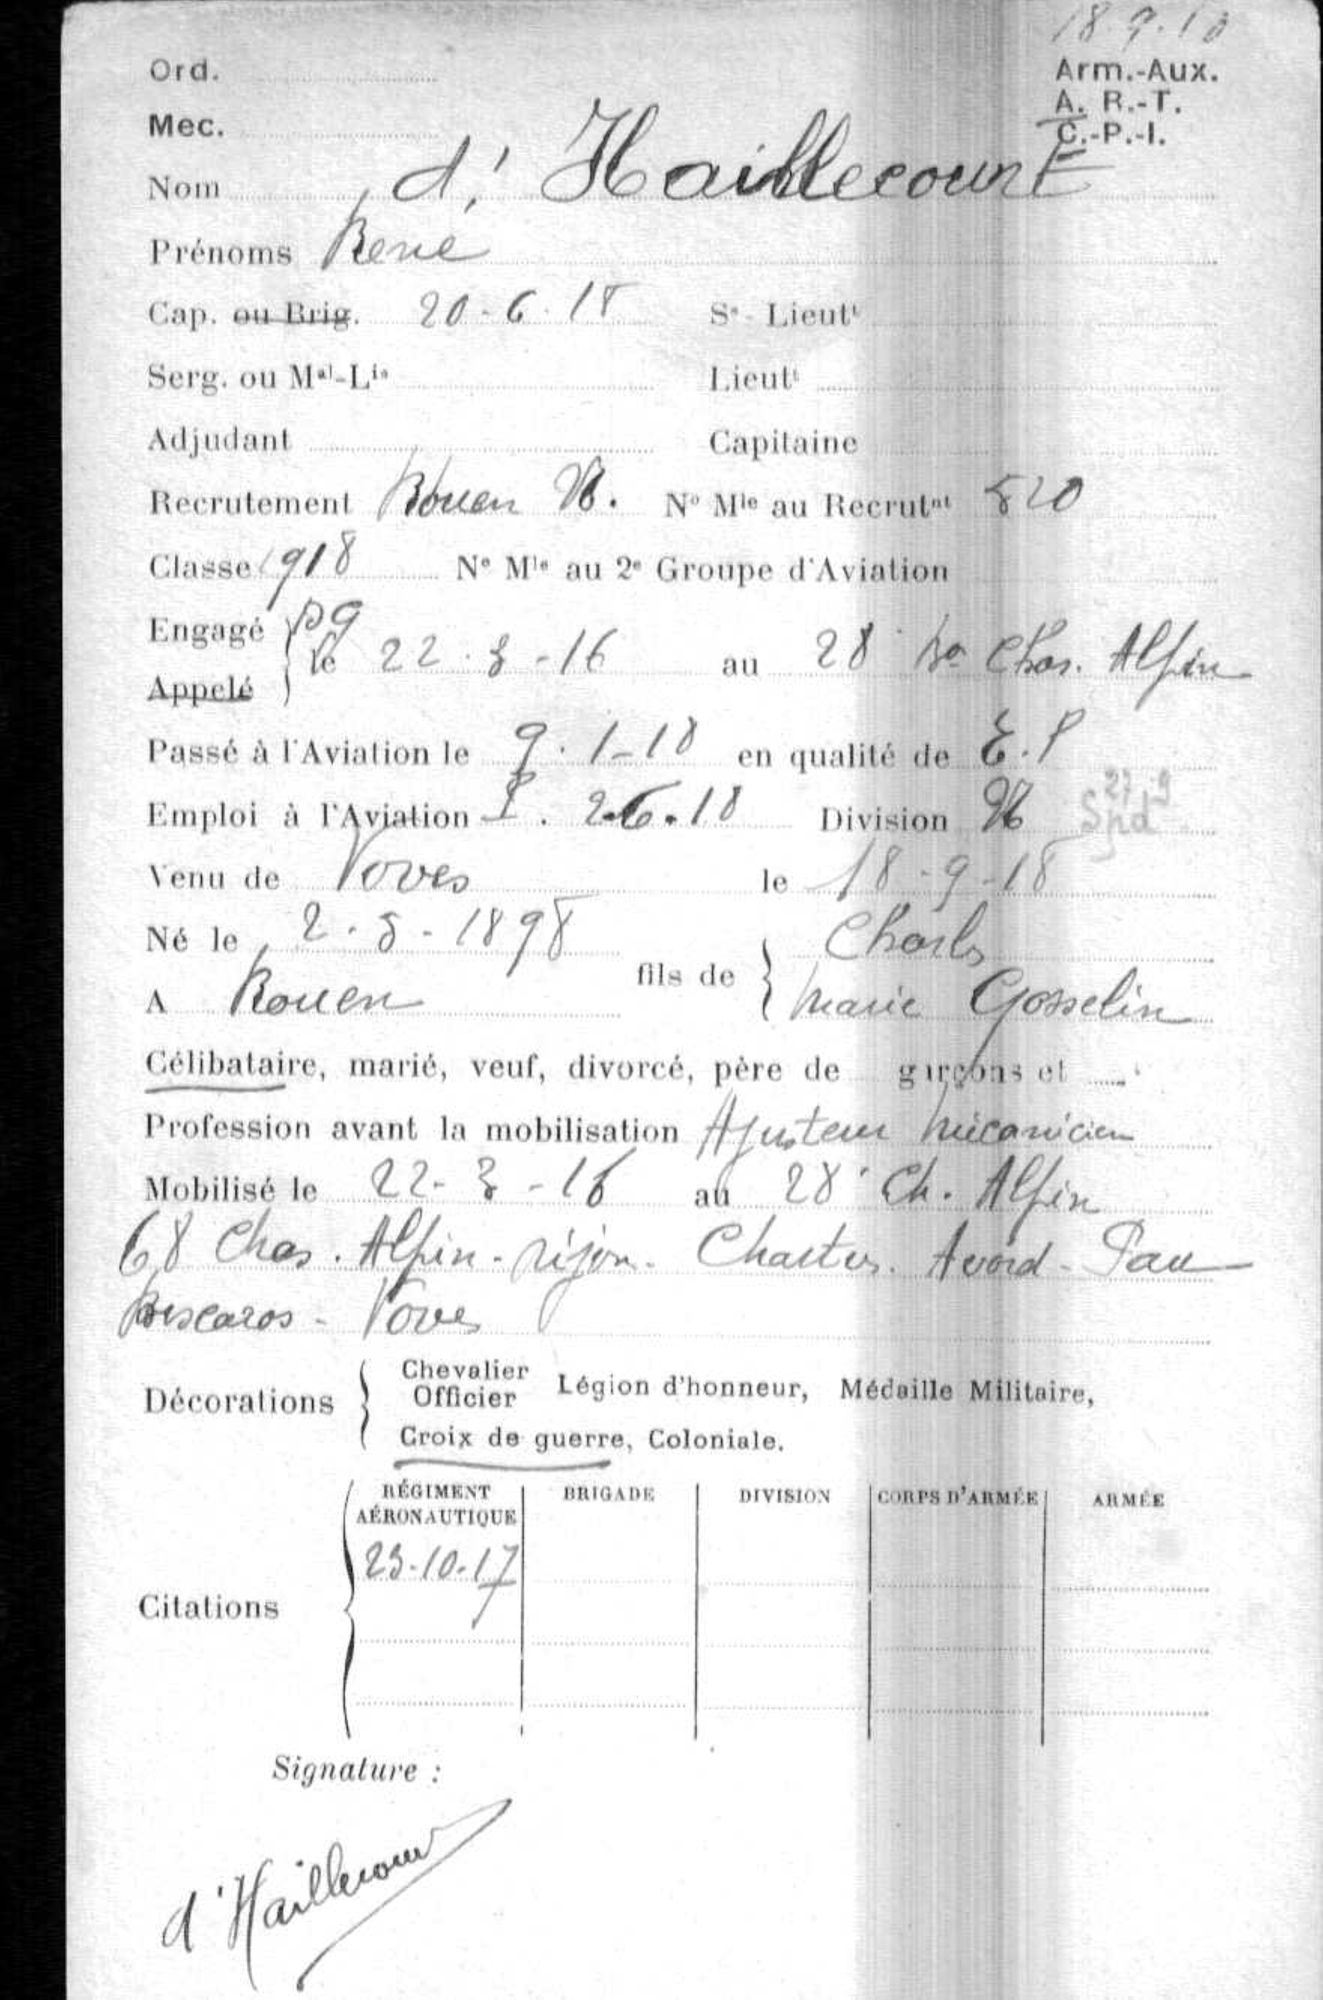 18.9.18
Ord.
Arm.-Aux.
A. R.-T.
Mec.
C.-P.-I.
Nom d'Haillecourt
Prénoms René
Cap. ou Brig. 20-6-18 Sˢ- Lieutᵗ
Serg. ou Mᵃˡ-Lⁱˢ Lieutᵗ
Adjudant Capitaine
Recrutement Rouen N. Nº Mˡᵉ au Recrutⁿᵗ 820
Classe 1918 Nº Mˡᵉ au 2ᵉ Groupe d'Aviation
Engagé pg
le 22-3-16 au 28 Bᵒⁿ Chas. Alpin
Appelé
Passé à l'Aviation le 9-1-18 en qualité de E.P
Emploi à l'Aviation P. 2.6.18 Division N Spd 27 9
Venu de Voves le 18-9-18
Né le 2-5-1898 Charles
fils de
A Rouen Marie Gosselin
Célibataire, marié, veuf, divorcé, père de garçons et
Profession avant la mobilisation Ajusteur mécanicien
Mobilisé le 22-3-16 au 28 Ch. Alpin
68 Chas. Alpin - Dijon. Chartres. Avord - Pau
Biscaros - Voves
Chevalier
Officier Légion d'honneur, Médaille Militaire,
Décorations
Croix de guerre, Coloniale.
RÉGIMENT AÉRONAUTIQUE BRIGADE DIVISION CORPS D'ARMÉE ARMÉE
23-10-17
Citations
Signature :
d'Haillecourt